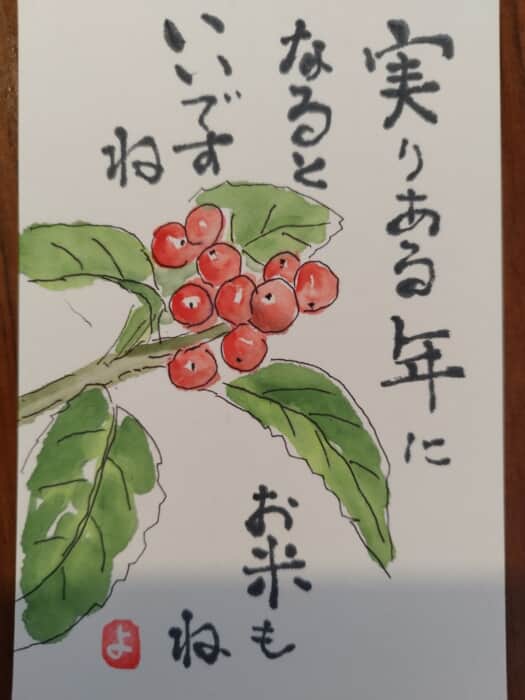 実りある年に
なると
いいです
ね
お米も
ね
よ